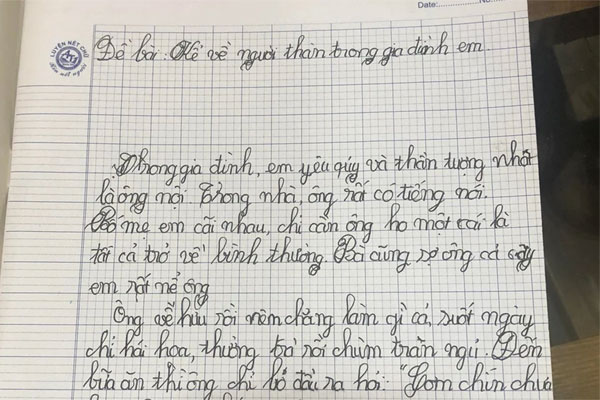 Date: No.
LUYỆN NÉT CHỮ
Rèn nết người
Đề bài: Kể về người thân trong gia đình em
Trong gia đình, em yêu qúy và thần tượng nhất
là ông nội. Trong nhà, ông rất có tiếng nói.
Bố mẹ em cãi nhau, chỉ cần ông ho một cái là
tất cả trở về bình thường. Bà cũng sợ ông cả
em rất nể ông
Ông về hưu rồi nên chẳng làm gì cả, suốt ngày
chỉ hái hoa, thưởng trà rồi chùm trăn ngủ. Đến
bữa ăn thì ông chỉ ló đầu ra hỏi: "Cơm chín chưa